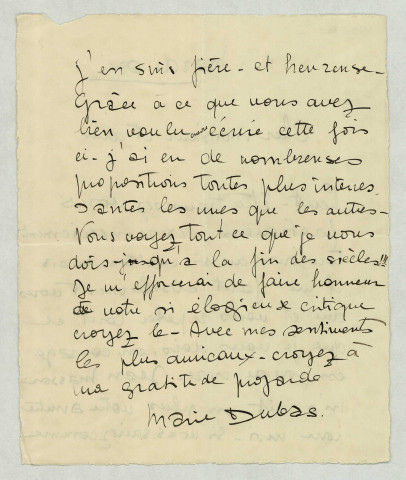 J'en suis fière - et heureuse -
Grâce à ce que vous avez
bien voulu écrire cette fois
ci - j'ai eu de nombreuses
propositions toutes plus interes
santes les unes que les autres -
Vous voyez tout ce que je vous
dois - jusqu'à la fin des siècles !!!
Je m'efforcerai de faire honneur
à votre si élogieux critique
croyez le - Avec mes sentiments
les plus amicaux - croyez à
ma gratitude profonde
Marie Dubas.